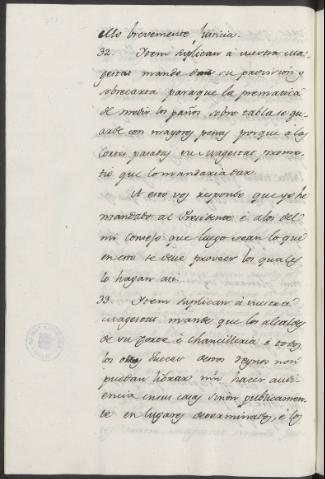 ello brevemente, Justicia.
32. Item suplican à vuestra Ma-
gestad mande dar su provision y
sobrecarta para que la prematica
de medir los paños sobre tabla se gu-
arde con mayores penas porque à las
Cortes pasadas su Magestad prome-
tió que lo mandaria dar.
A esto vos respondo que yo he
mandado al Presidente è à los del
mi Consejo que luego vean lo que
en esto se deve proveer los quales
lo hagan asi.
33. Item suplican à vuestra
Magestad mande que los alcaldes
de su Corte è Chancilleria è todos
los otros Jueces destos Reynos non
puedan librar nin hacer audi-
encia en sus casas sinon publicamen-
te en lugares determinados, è los